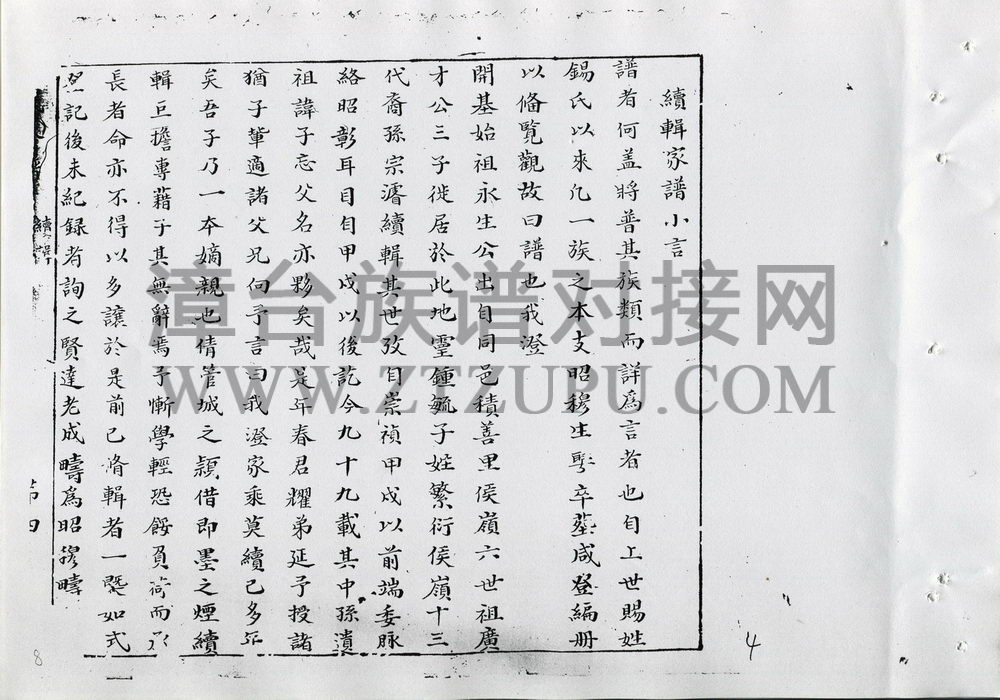 續輯家譜小言
譜者何盖將普其族類而詳為言者也自上世賜姓
錫氏以來凡一族之本支昭穆生娶卒塟咸登編册
以俻覧觀故曰譜也我澄
開基始祖永生公出自同邑積善里侯嶺六世祖廣
才公三子徙居於此地靈鍾毓子姓繁衍侯嶺十三
代裔孫宗濬續輯其世攷自崇禎甲戌以前端委脉
絡昭彰耳目自甲戌以後訖今九十九載其中孫瀆
祖諱子忘父名亦夥矣哉是年春君耀弟延予授諸
猶子軰適諸父兄向予言曰我澄家乘莫續已多年
矣吾子乃一本嫡親也倩管城之頴借即墨之煙續
輯巨擔專藉子其無辭焉予慚學輕恐餒負荷而
長者命亦不得以多讓於是前已脩輯者一槩如式
登記後未紀録者詢之賢達老成疇為昭穆疇
續
4
8
漳台族谱对接网
WWW.ZTZUPU.COM